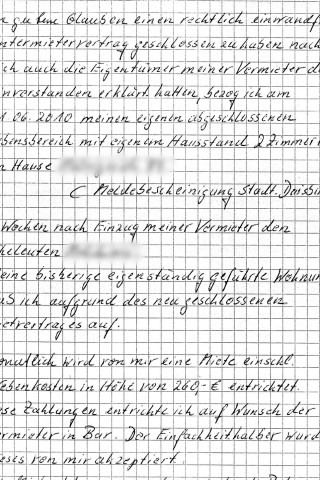 n gutem Glauben einen rechtlich einwandf
ntermietervertrag geschlossen zu haben nach
ch auch die Eigentümer meiner Vermieter da
nverstanden erklärt hatten, bezog ich am
1 06.2010 meinen eigenen abgeschlossenen
ebensbereich mit eigenem Hausstand 2 Zimmer i
m Hause
( Meldebescheinigung Stadt. Duisbu
Wochen nach Einzug meiner Vermieter den
heleuten
eine bisherige eigenständig geführte Wohnun
aß ich aufgrund des neu geschlossenen
ietvertrages auf.
onatlich wird von mir eine Miete einschl.
ebenkosten in Höhe von 260,- € entrichtet.
ese Zahlungen entrichte ich auf Wunsch der
ermieter in Bar. Der Einfachheithalber wurd
eses von mir akzeptiert.